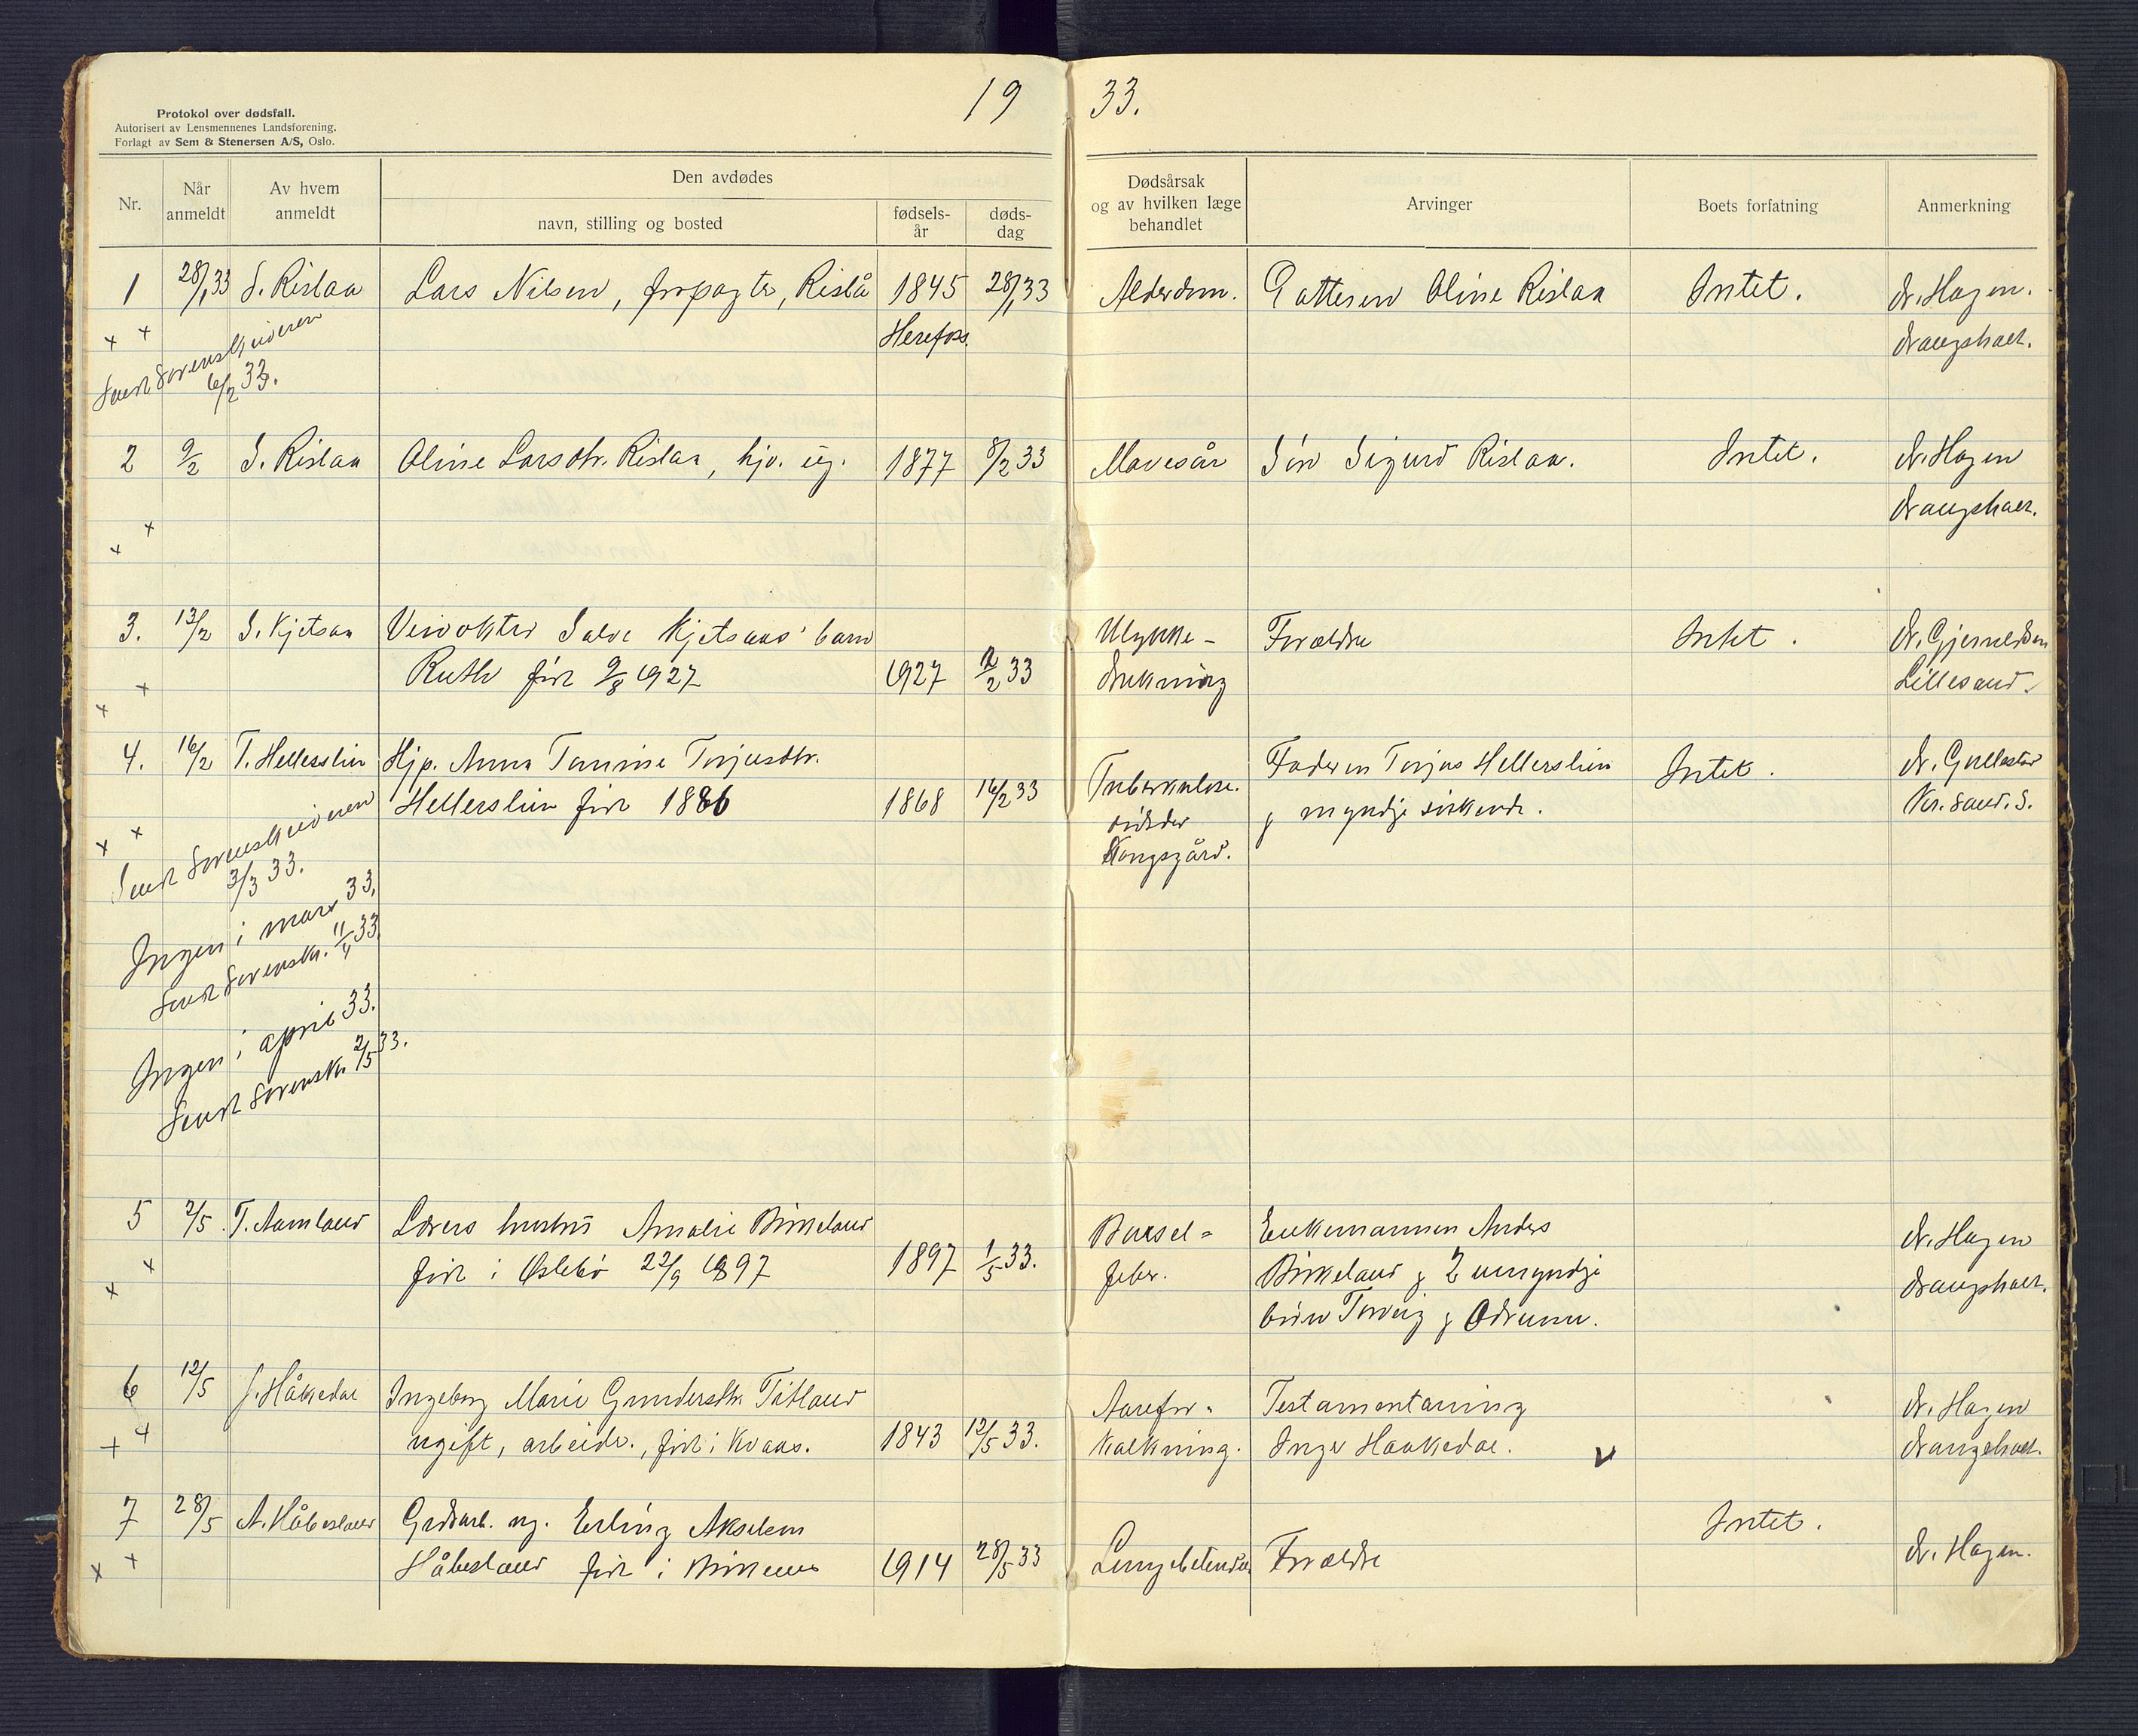 19 33.
Protokol over dødsfall.
Autorisert av Lensmennenes Landsforening.
Forlagt av Sem & Stenersen A/S, Oslo.
Nr.
Når anmeldt
Av hvem anmeldt
Den avdødes
navn, stilling og bosted
fødsels-år
døds-dag
Dødsårsak og av hvilken læge behandlet
Arvinger
Boets forfatning
Anmerkning
1 28/1 33 S. Rislaa Lars Nilsen, forpagter, Rislå 1845 28/1 33 Alderdom. Gattesen Oline Rislaa Intet. dr. Hagen.
x x Herefoss. Vraugshaer.
Sendt Sorenskriveren
6/2 33.
2 9/2 S. Rislaa Oline Larsdtr. Rislaa, hjv. ug. 1877 8/2 33 Mavesår Søn Sigurd Rislaa. Intet. dr. Hagen
x x
3. 13/2 S. Kjetsaa Veivokter Salve Kjetsaas' barn Ulykke- Forældre Intet. dr.
x x Ruth født 9/8 1927 1927 2/2 33 drukning Lillesand.
4. 16/2 T. Hellersliin Hjp. Anna Tomine Torjusdtr. Tuberkulose. Faderen Torjus Hellersliin Intet. dr. Gullestad
x x Hellersliin født 1886 1868 16/2 33 & myndige søskende. Kr.sand. S.
Kongsgård.
Sendt Sorenskriveren
3/3 33.
Ingen i mars 33.
Sendt Sorenskr. 11/4 33.
Ingen i april 33.
Sendt Sorenskr. 2/5 33.
5 2/5 T. Aamland Lærers hustru Amalie Birkeland Barsel= Enkemannen Anders dr. Hagen
x x født i Øslebø 22/9 1897 1897 1/5 33. feber. Birkeland & 2 umyndige
børn Torveig & Odrunn.
6 12/5 J. Håkedal Ingeborg Marie Gundersdtr. Tåtland Aarefor= Testamentarving dr. Hagen
x x ugift, arbeider., født i Kvaas. 1843 12/5 33. kalkning. Inger Haakedal. v
7 28/5 A. Håbesland Grdsarb. ug. Erling Akselsen Intet.
x x Håbesland født i Birkenes 1914 28/5 33 Lungebetendelse Forældre dr. Hagen.